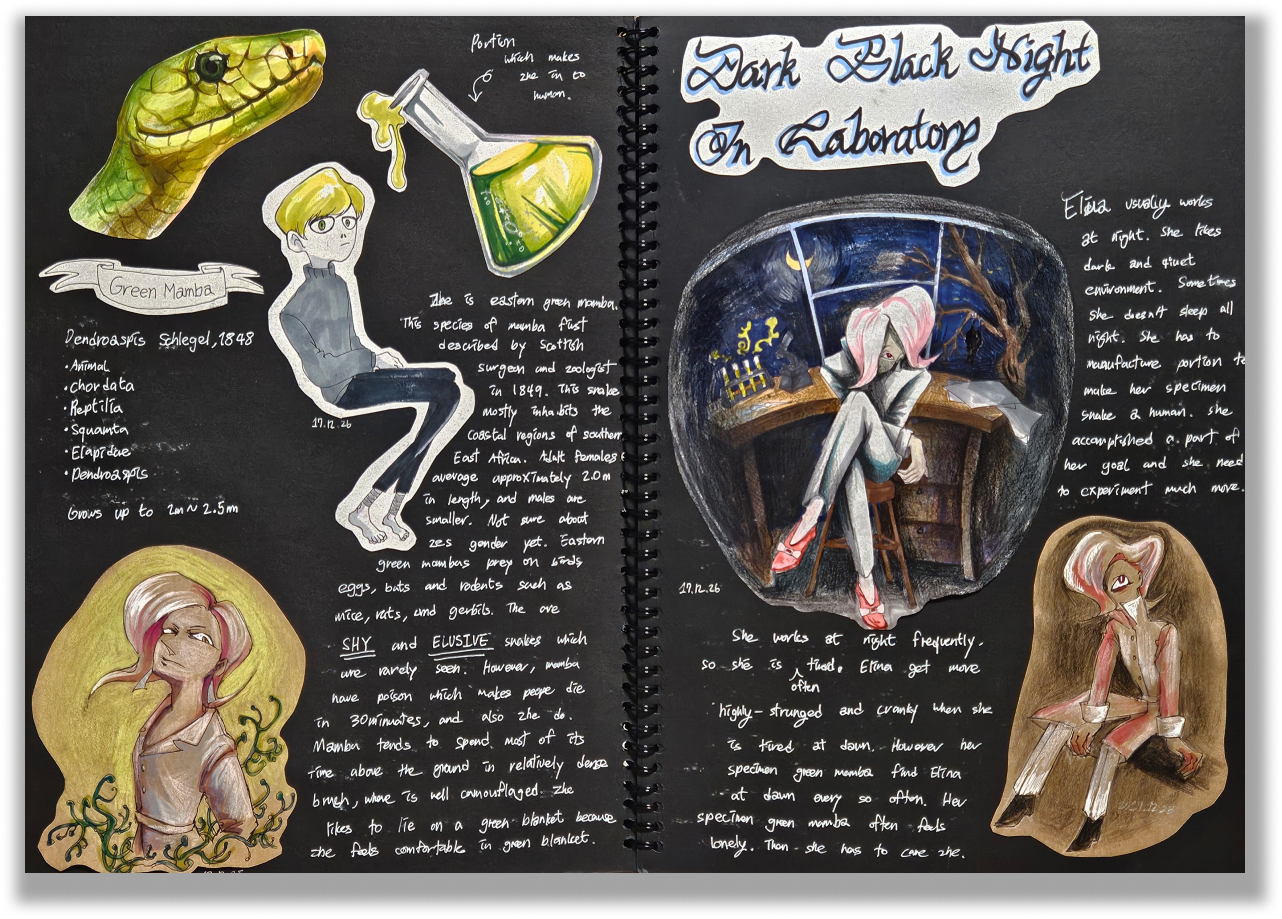 Portion
which makes
zhe in to
human.
Green Mamba
Dendroaspis Schlegel, 1848
• Animal
• Chordata
• Reptilia
• Squamta
• Elapidae
• Dendroaspis
Grows up to 2m ~ 2.5m
17.12.26
Zhe is eastern green mamba.
This species of mamba first
described by Scottish
surgeon and zoologist
in 1849. This snake
mostly inhabits the
coastal regions of southern
East Africa. Adult females
average approximately 2.0m
in length, and males are
smaller. Not sure about
zes gender yet. Eastern
green mambas prey on birds
eggs, bats and rodents such as
mice, rats, and gerbils. The are
SHY and ELUSIVE snakes which
are rarely seen. However, mamba
have poison which makes peope die
in 30minuates, and also zhe do.
Mamba tends to spend most of its
time above the ground in relatively dense
brush, where is well camouflaged. Zhe
likes to lie on a green blanket because
zhe feels comfortable in green blanket.
Dark Black Night
In Laboratory
Elina usually works
at night. She likes
dark and quiet
environment. Sometimes
she doesn't sleep all
night. She has to
manufacture portion to
make her specimen
snake a human. She
accomplished a part of
her goal and she need
to experiment much more.
17.12.26
She works at night frequently.
so she is often tired. Elina get more
highly-strunged and cranky when she
is tired at dawn. However her
specimen green mamba find Elina
at dawn every so often. Her
specimen green mamba often feels
lonely. Then she has to care zhe.